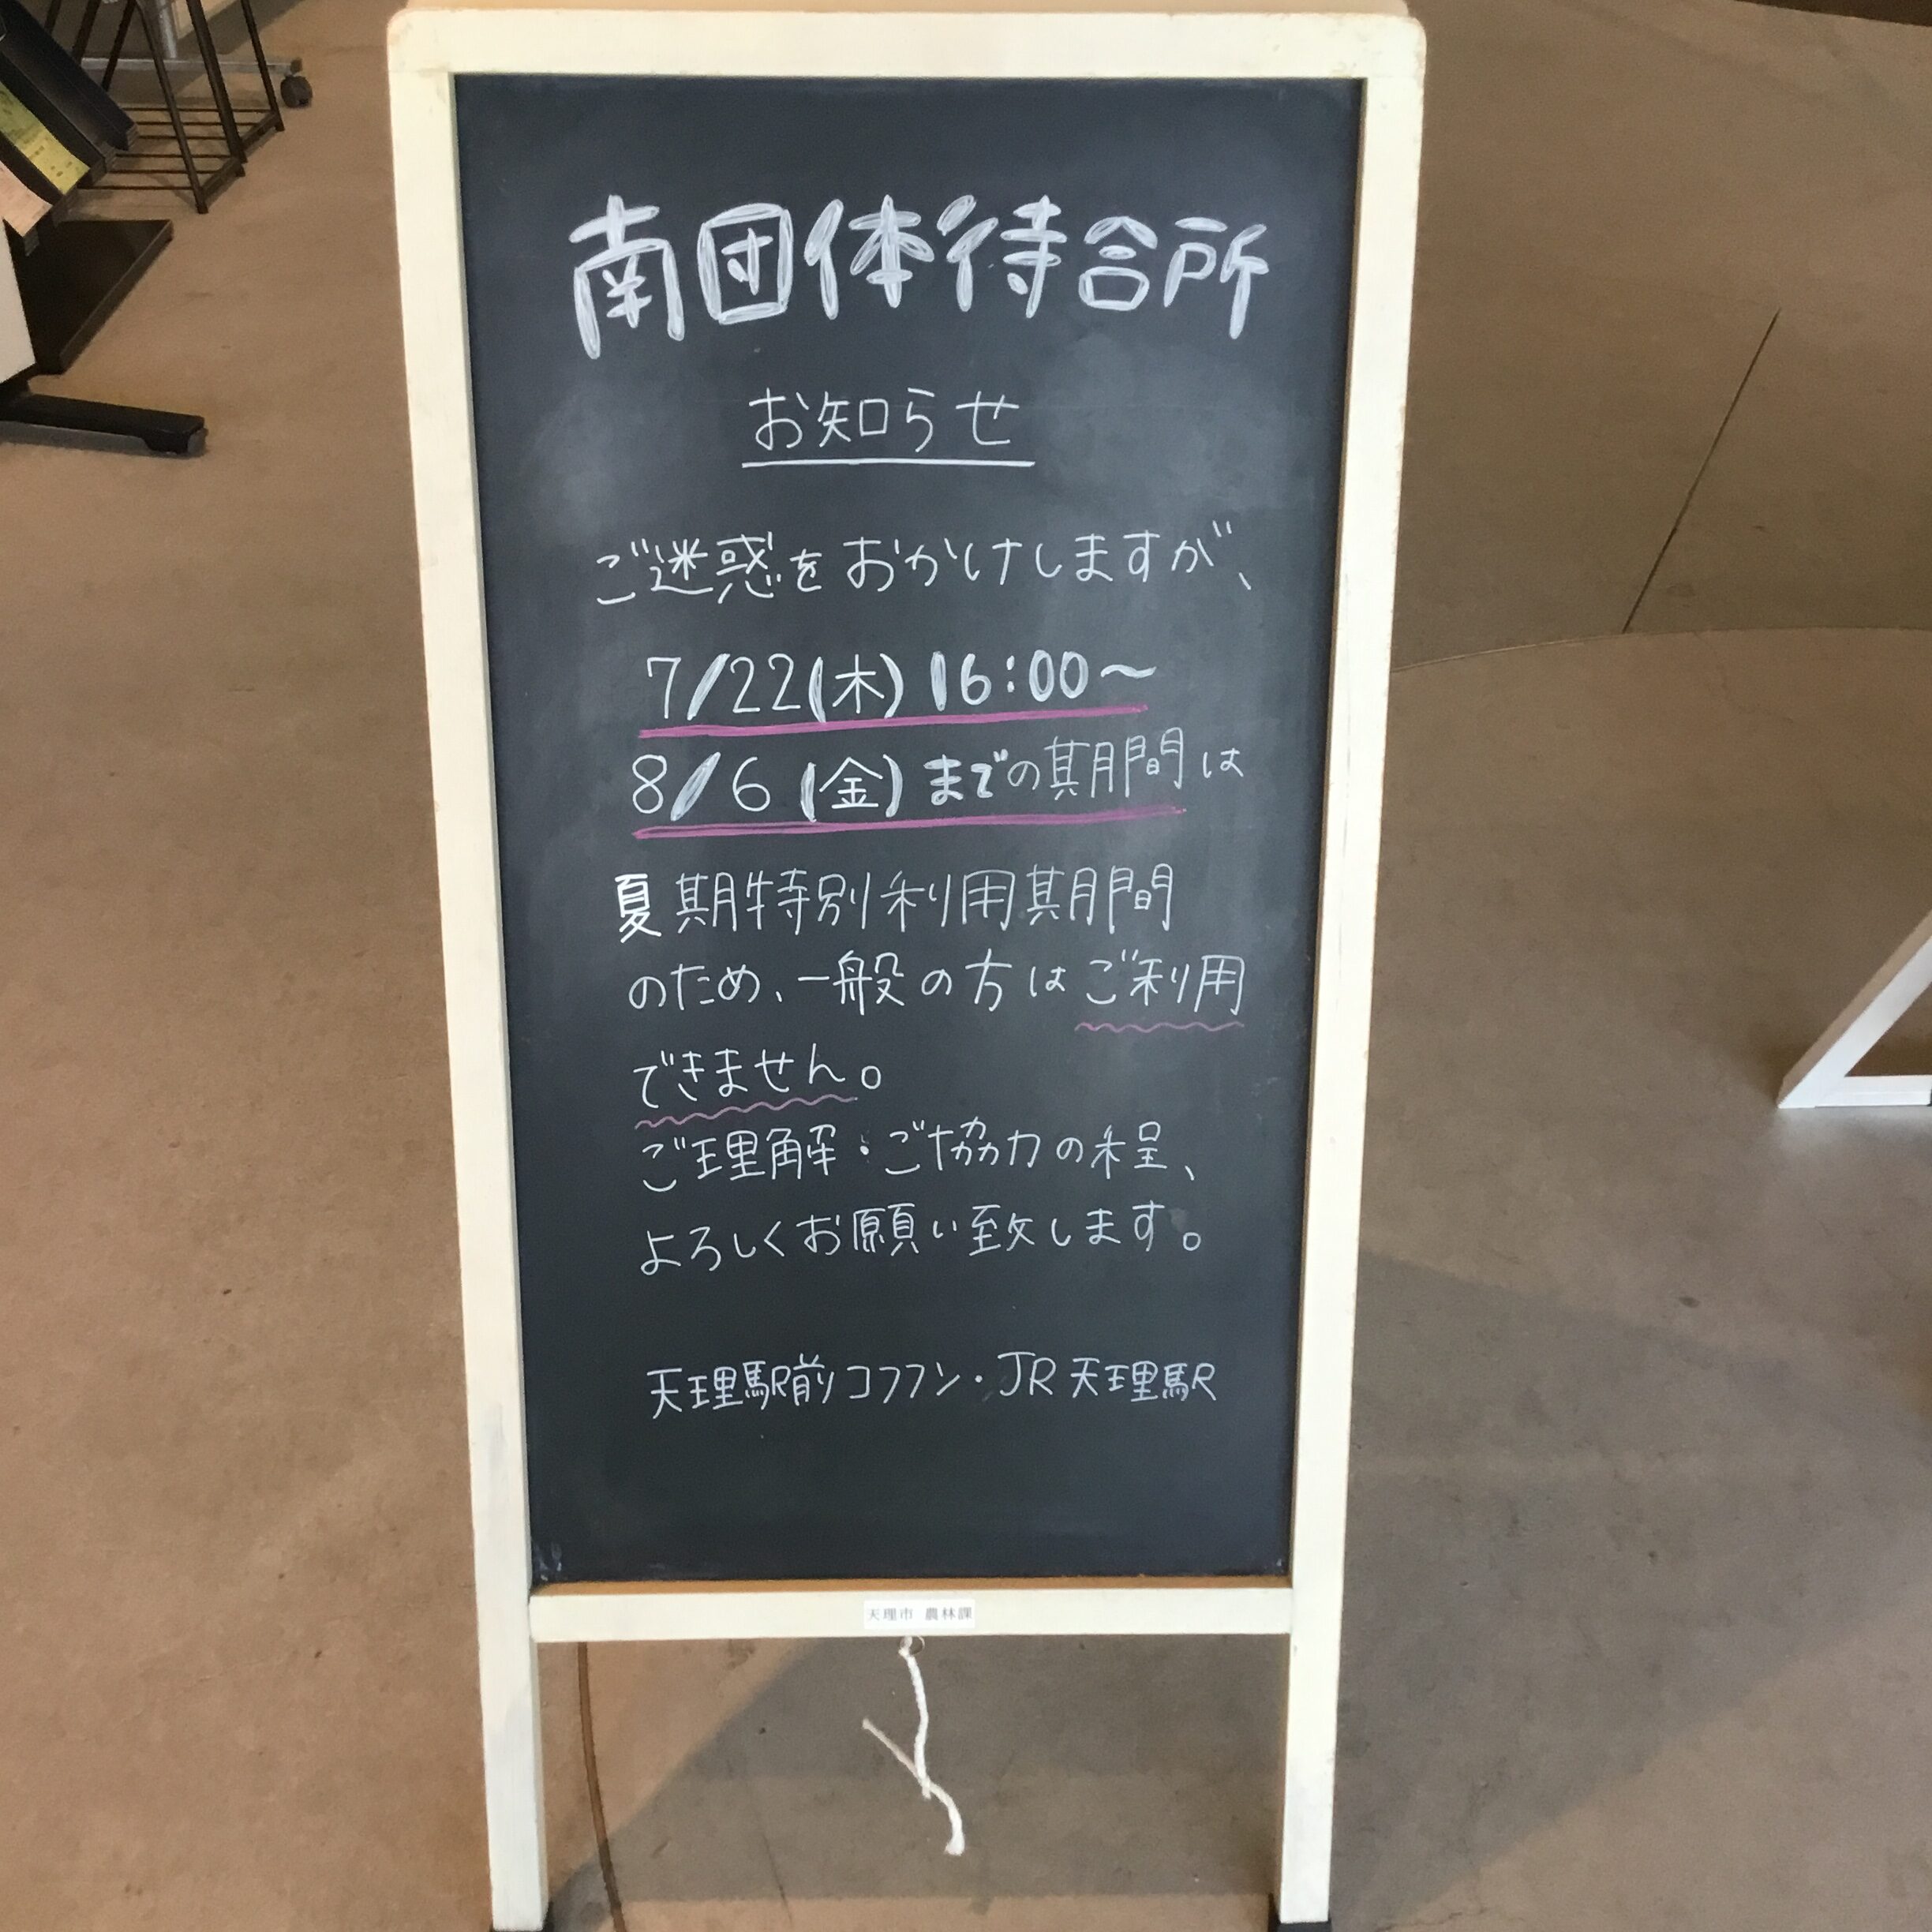 南団体待合所
お知らせ
ご迷惑をおかけしますが、
7/22(木) 16:00〜
8/6(金)までの期間は
夏期特別利用期間
のため、一般の方はご利用
できません。
ご理解・ご協力の程、
よろしくお願い致します。
天理駅前コフフン・JR天理駅
天理市 農林課